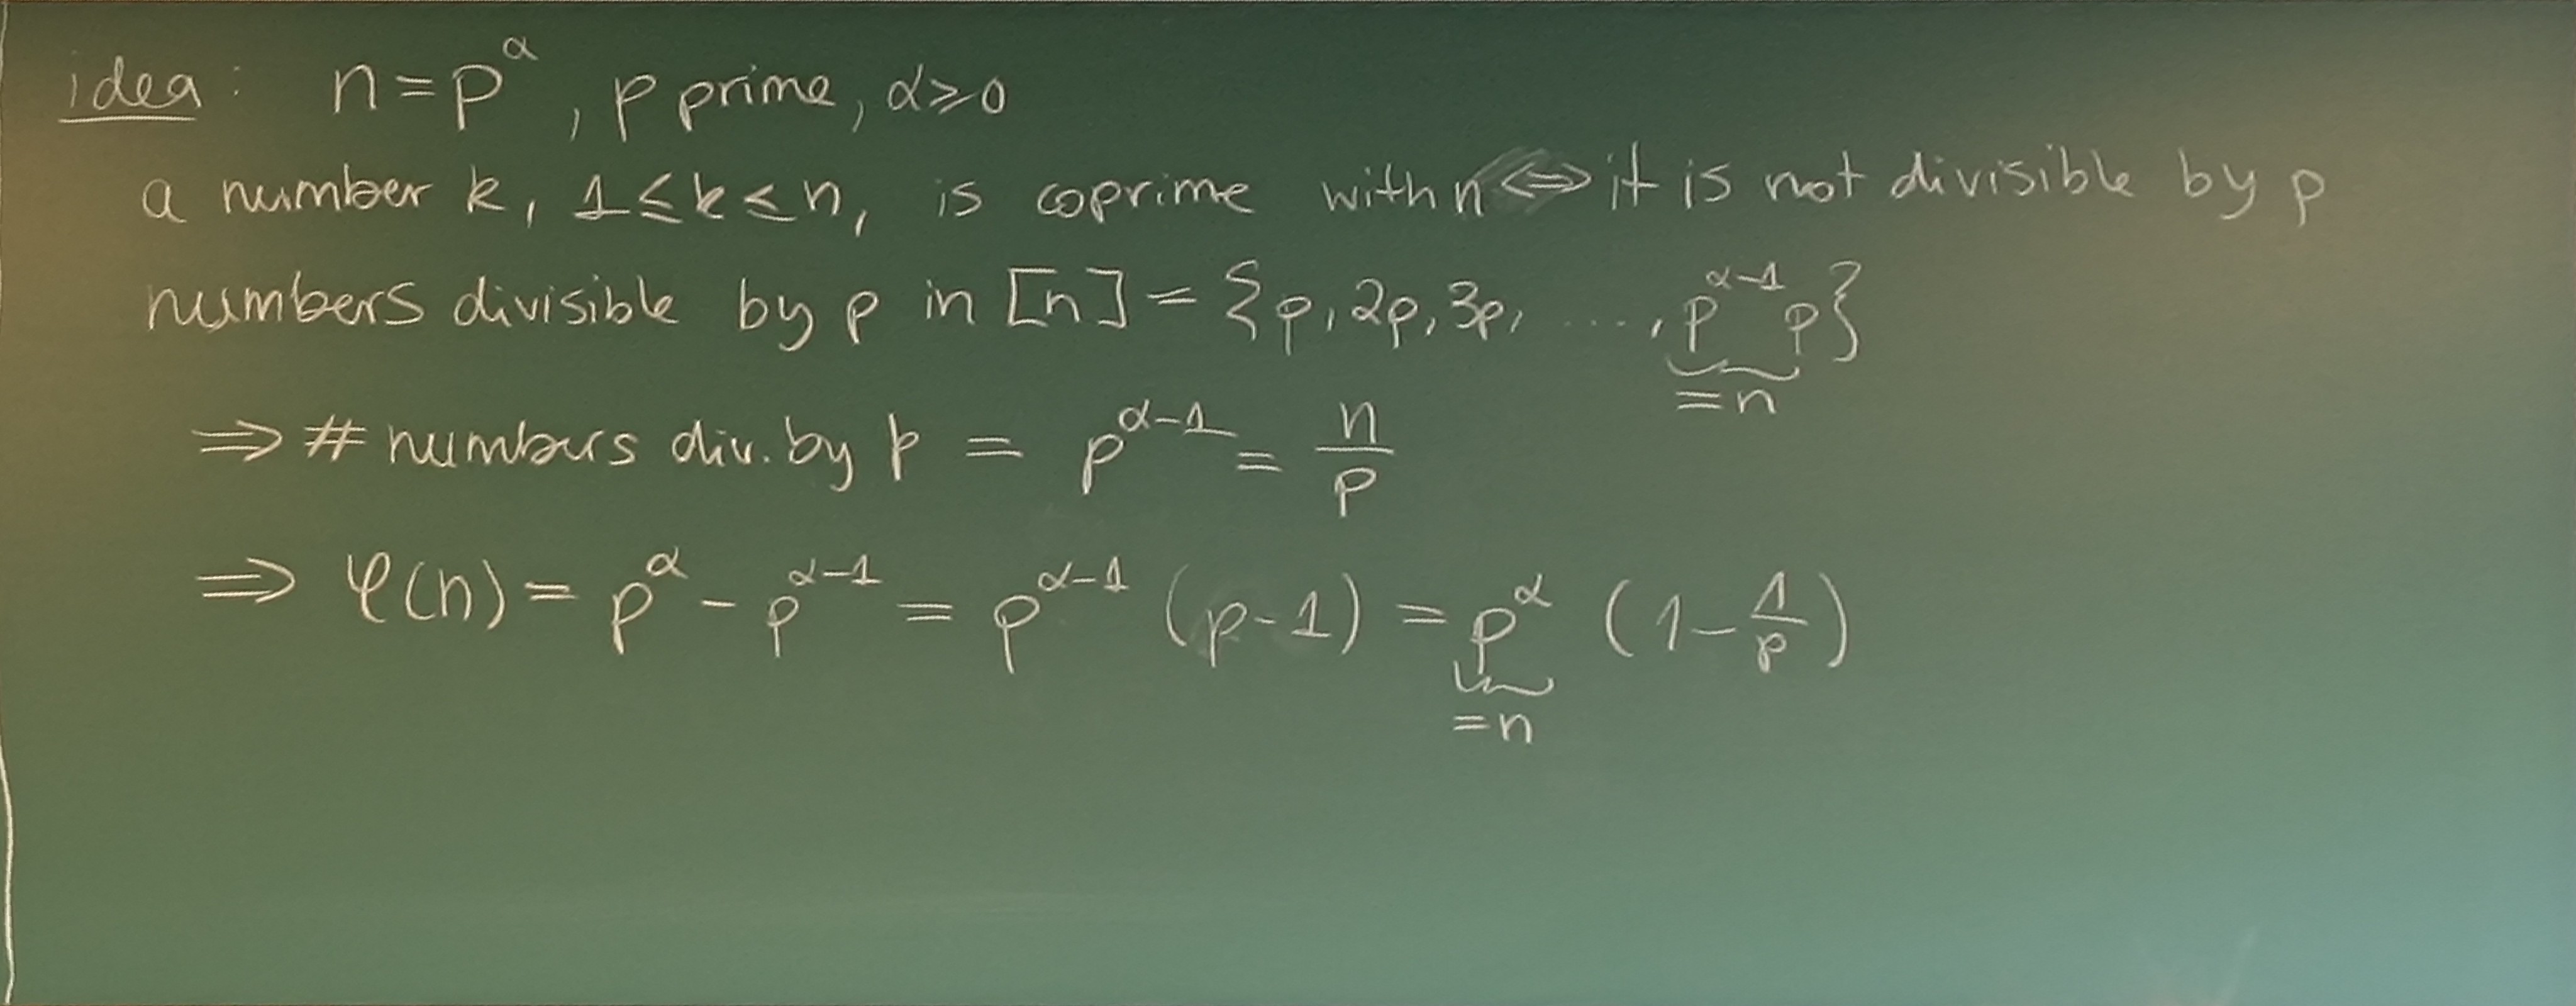 idea: n=p^α, p prime, α⩾0
a number k, 1≤k≤n, is coprime with n ⇔ it is not divisible by p
numbers divisible by p in [n] = {p, 2p, 3p, ..., p^{α-1} p}
=n
⇒ # numbers div. by p = p^{α-1} = n/p
⇒ φ(n) = p^α - p^{α-1} = p^{α-1} (p-1) = p^α (1-1/p)
=n